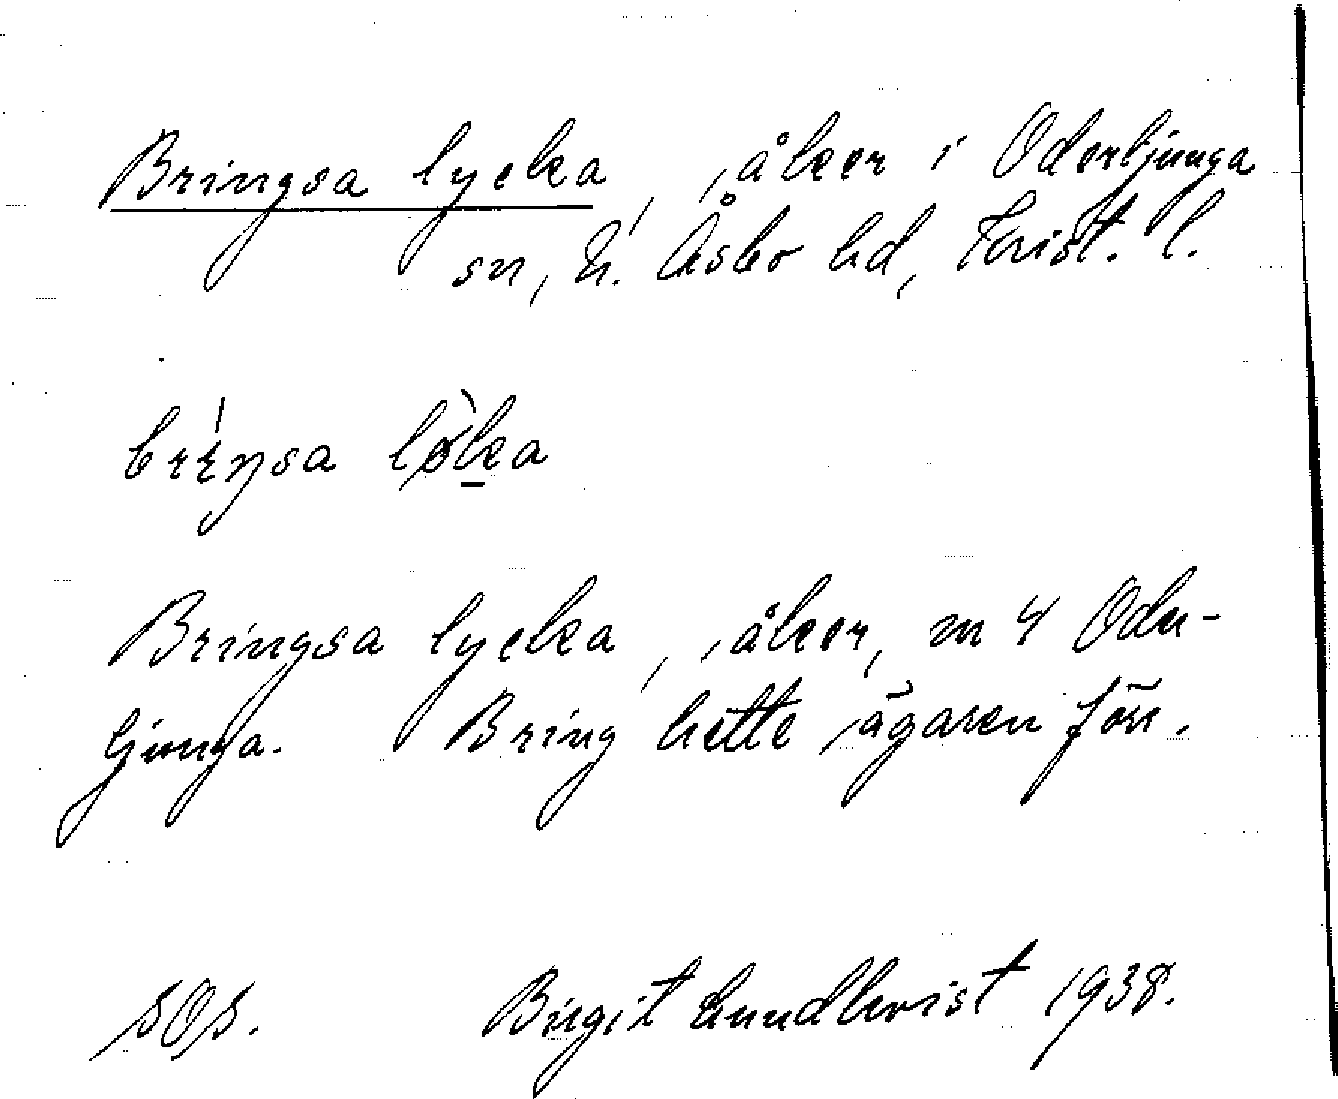 Bringsa lycka, åker i Oderljunga
sn, N. Åsbo hd, Krist. l.
bríŋsa lø̀ka
Bringsa lycka, åker, m 4 Oder-
ljunga. Bring hette ägaren förr.
SOS. Birgit Lundkvist 1938.